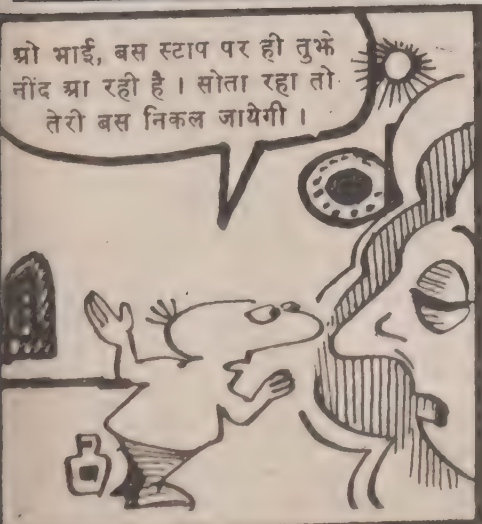 ग्रो भाई, बस स्टाप पर ही तुझे
नींद ग्रा रही है । सोता रहा तो
तेरी बस निकल जायेगी ।